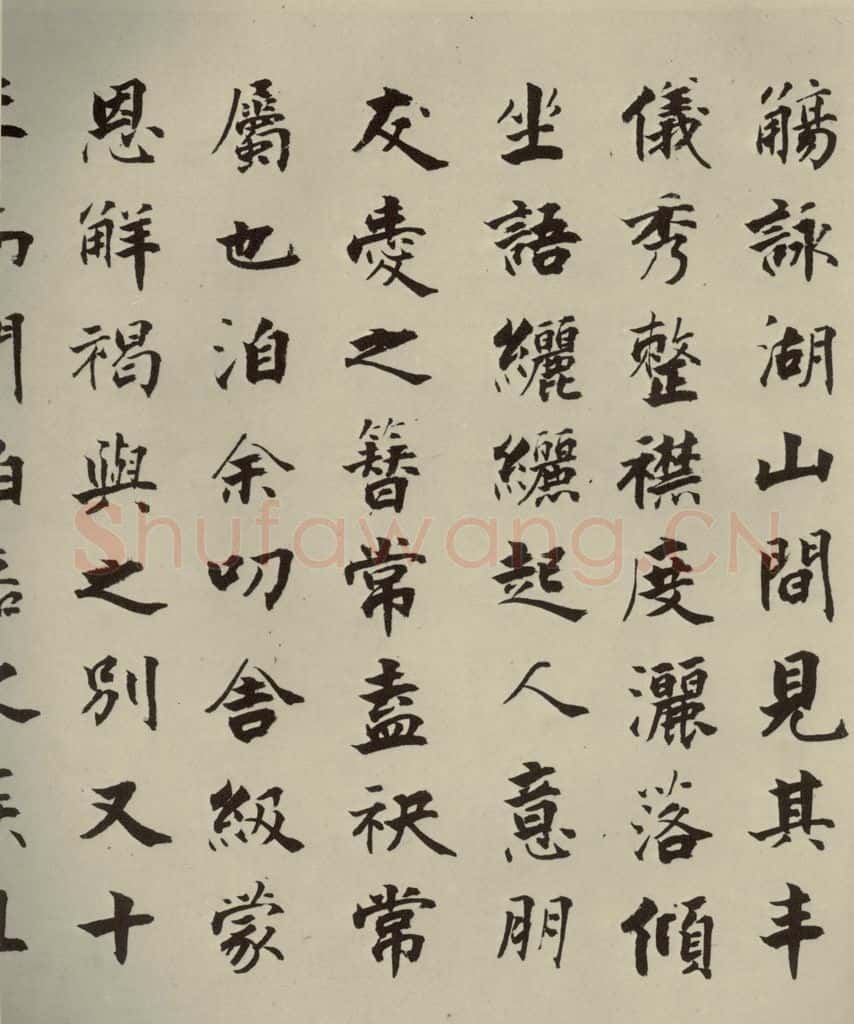 觴詠湖山間見其丰
儀秀整襟度灑落傾
坐語纚纚起人意朋
友愛之簪常盍袂常
屬也洎余叨舍級蒙
恩解褐與之別又十
Shufawang.CN